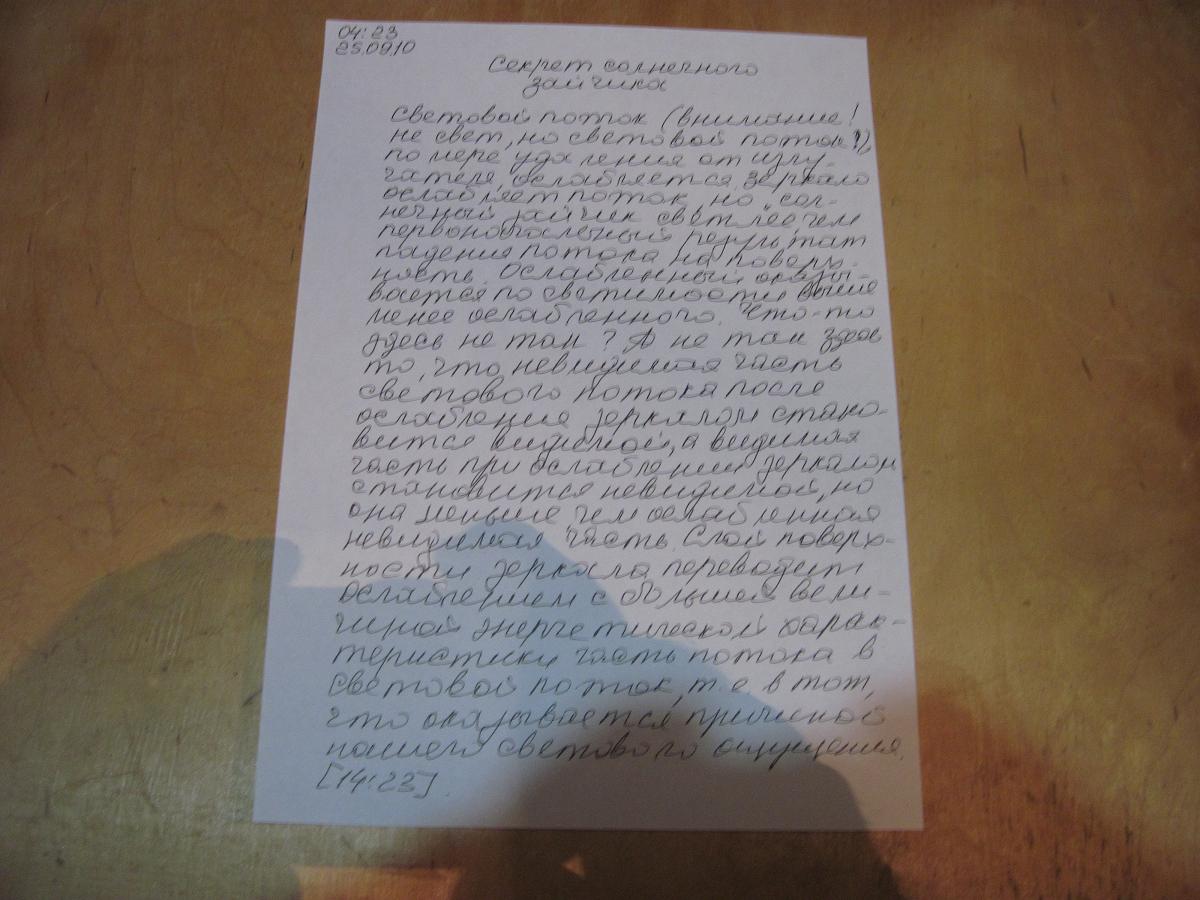 04:23
25.09.10
Секрет солнечного
зайчика
Световой поток (внимание!
не свет, но световой поток!),
по мере удаления от излу-
чателя, ослабляется. Зеркало
ослабляет поток, но "сол-
нечный зайчик" светлее чем
первоначальный результат
падения потока на поверх-
ность. Ослабленный оказы-
вается по светимости выше
менее ослабленного. Что-то
здесь не так? А не так здесь
то, что невидимая часть
светового потока после
ослабления зеркалом стано-
вится видимой, а видимая
часть при ослаблении зеркалом
становится невидимой, но
она меньше чем ослабленная
невидимая часть. Слой поверх-
ности зеркала переводит
ослаблением с большей вели-
чиной энергетической харак-
теристики часть потока в
световой поток, т.е. в тот,
что оказывается причиной
нашего светового ощущения.
[14:23].